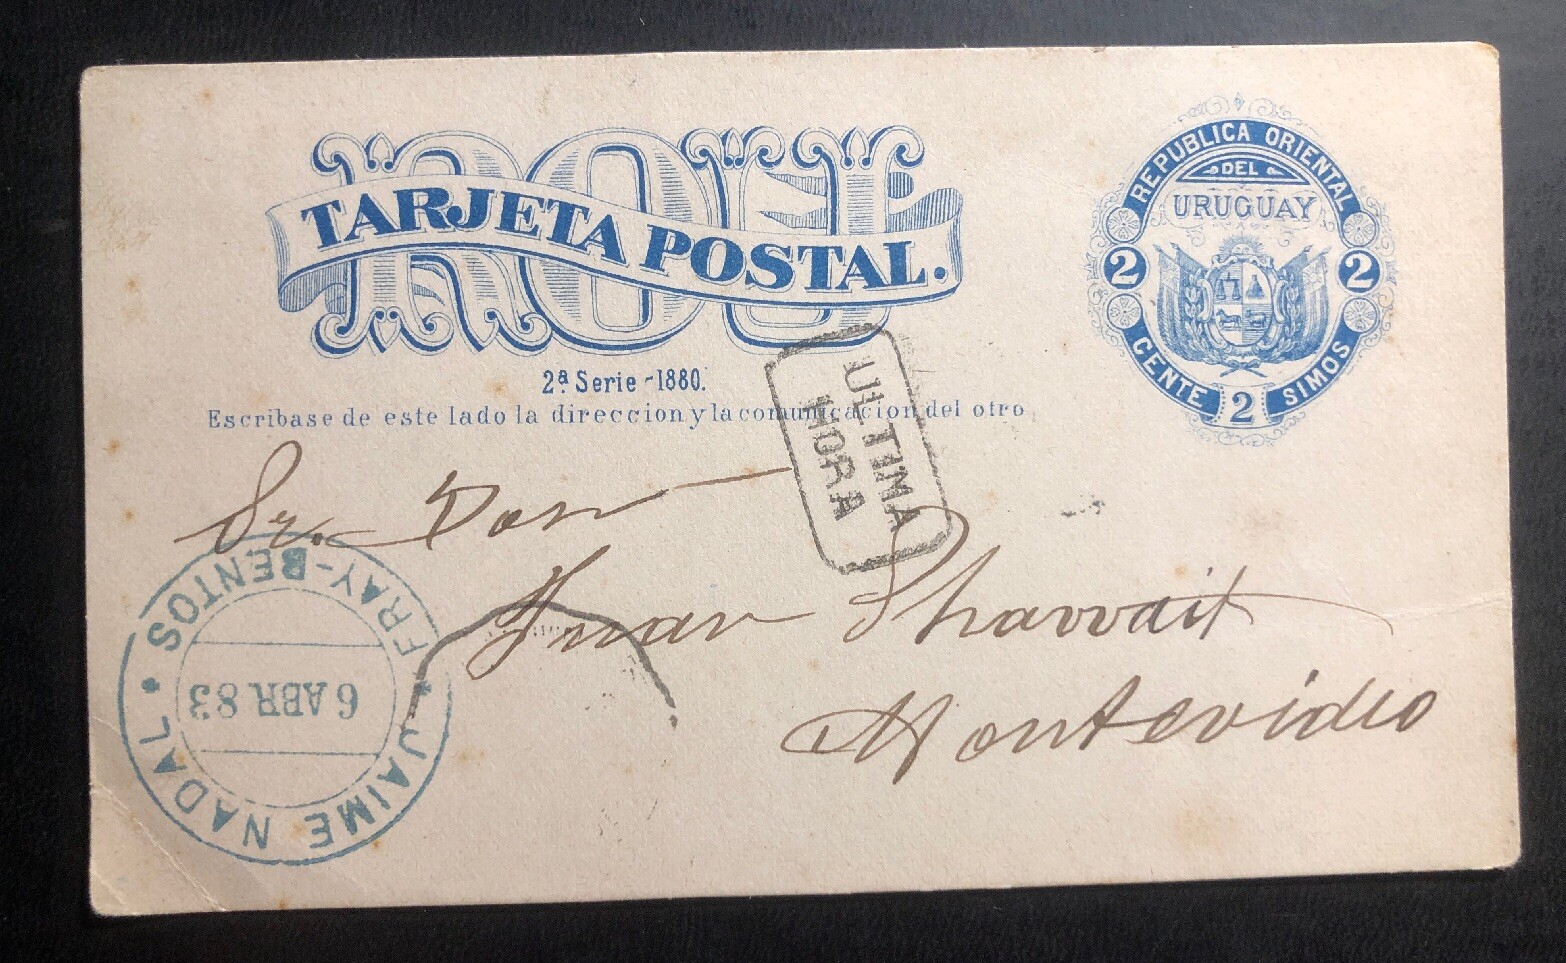 ROU
TARJETA POSTAL.
2ª Serie - 1880.
Escribase de este lado la direccion y la comunicacion del otro
REPUBLICA ORIENTAL
DEL
URUGUAY
2 2
CENTE 2 SIMOS
ULTIMA
HORA
Sr. Don
Juan Shaw
Montevideo
FRAY-BENTOS
6 ABR 83
JAIME NADAL